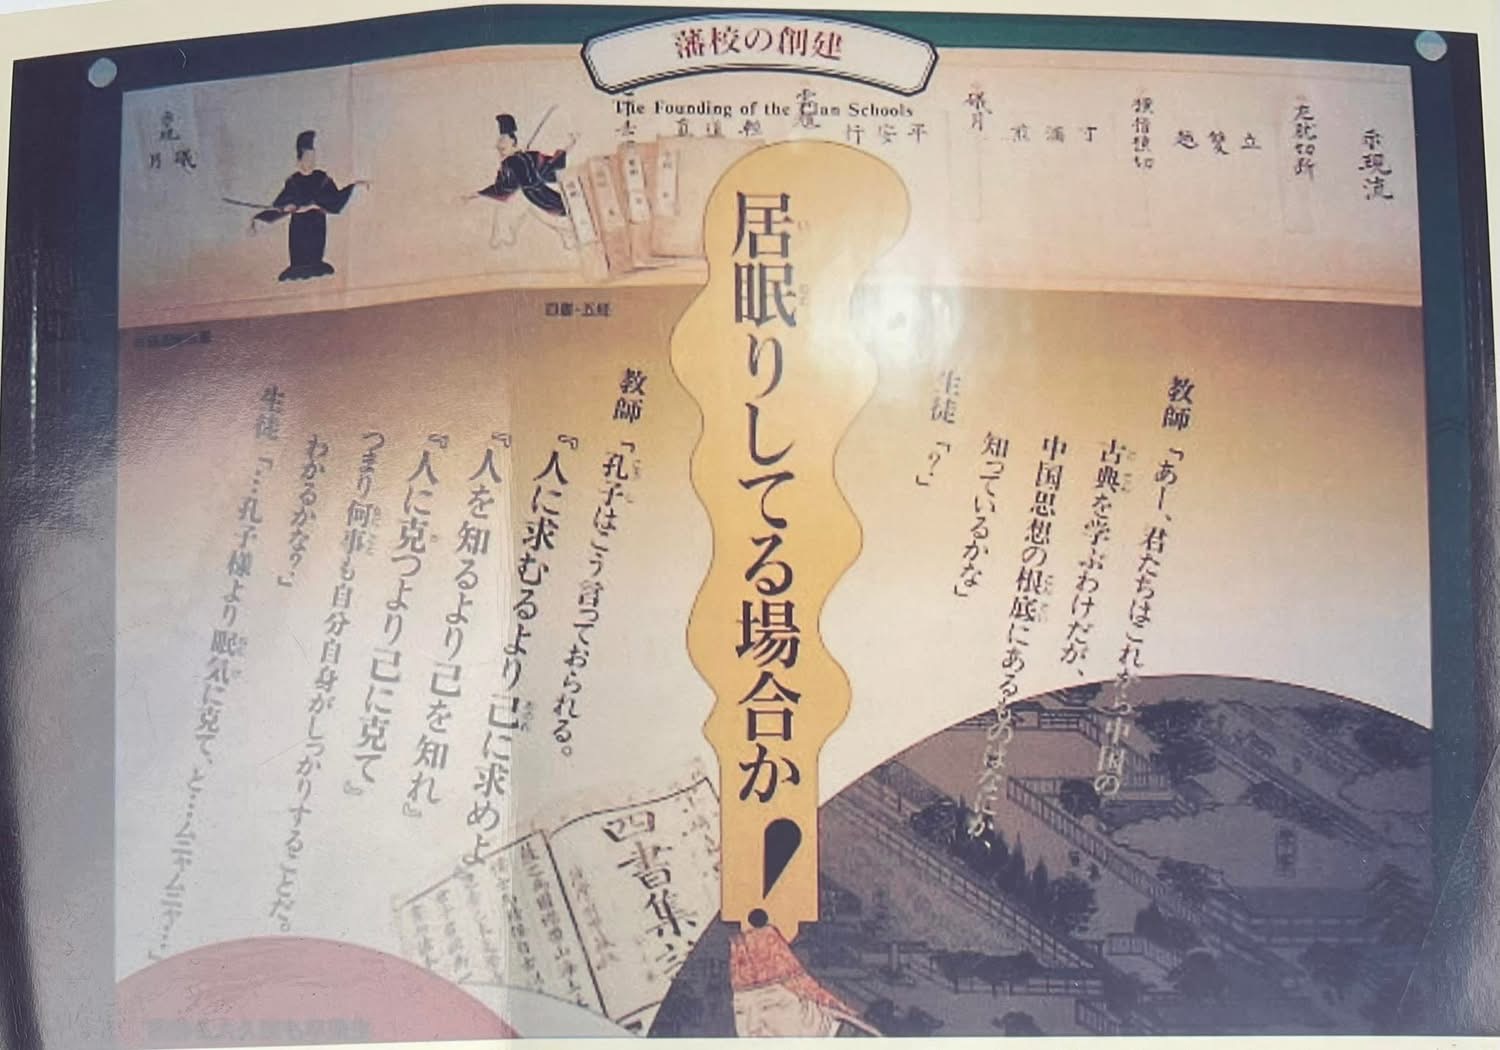 藩校の創建
The Founding of the Clan Schools
示現流
立
雙
越
丁
満
平安行
礒月
四書・五経
居眠りしてる場合か!
教師「あー、君たちはこれから中国の
古典を学ぶわけだが、
中国思想の根底にあるものはなにか
知っているかな」
生徒「?」
教師「孔子はこう言っておられる。
『人に求むるより己に求めよ』
『人を知るより己を知れ』
『人に克つより己に克て』
つまり何事も自分自身がしっかりすることだ。
わかるかな?」
生徒「…孔子様より眠気に克て、と…ムニャムニャ…」
四書集